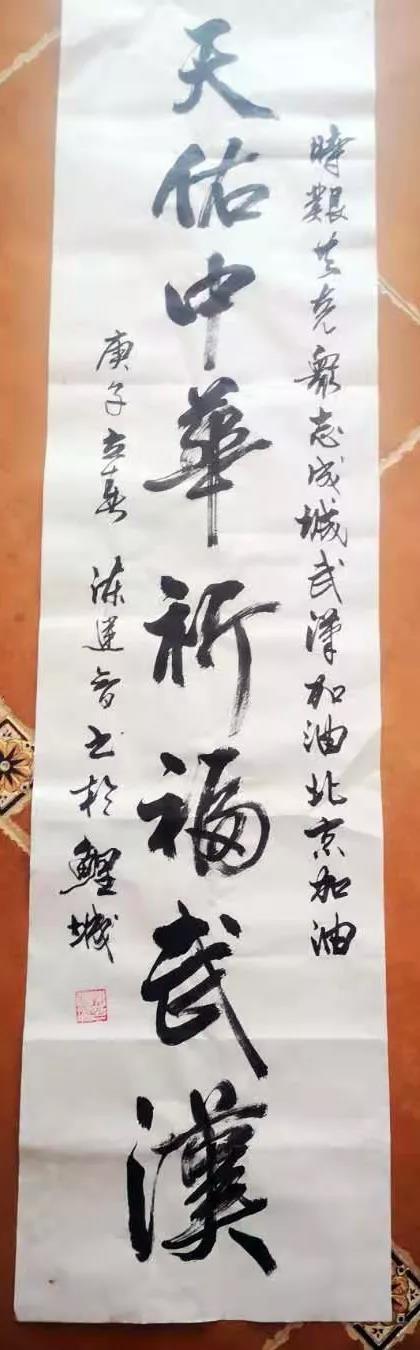 時艱共克衆志成城武漢加油北京加油
天佑中華祈福武漢
庚子立春 陳進智書於鯉城